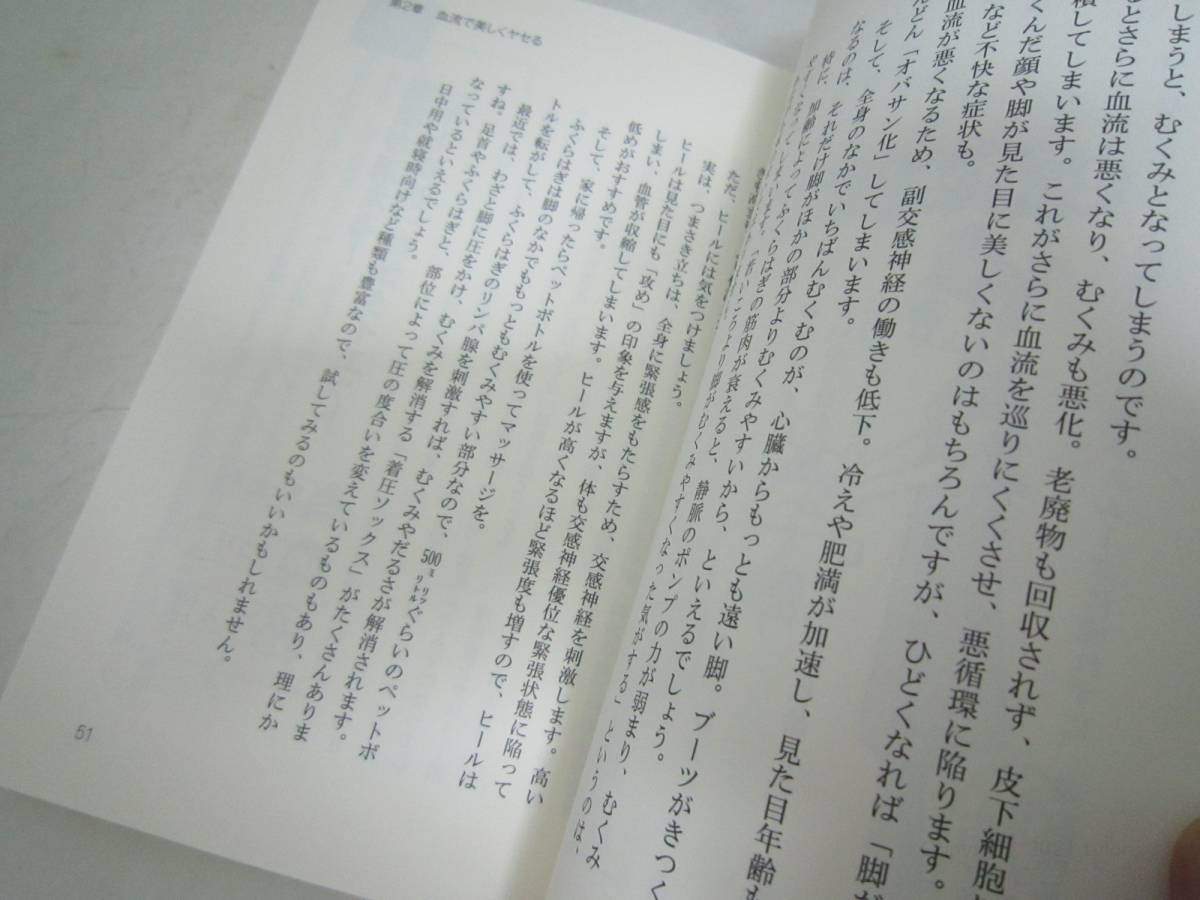 しまうと、むくみとなってしまうのです。
るとさらに血流は悪くなり、むくみも悪化。老廃物も回収されず、皮下細胞
積してしまいます。これがさらに血流を巡りにくくさせ、悪循環に陥ります。
くんだ顔や脚が見た目に美しくないのはもちろんですが、ひどくなれば「脚が
など不快な症状も。
血流が悪くなるため、副交感神経の働きも低下。冷えや肥満が加速し、見た目年齢も
んどん「オバサン化」してしまいます。
そして、全身のなかでいちばんむくむのが、心臓からもっとも遠い脚。ブーツがきつく
なるのは、それだけ脚がほかの部分よりむくみやすいから、といえるでしょう。
特に、加齢によってふくらはぎの筋肉が衰えると、静脈のポンプの力が弱まり、むくみ
やすくなってしまいます。「若いころより脚がむくみやすくなった気がする」というのは、
第2章 血流で美しくヤセる
ただ、ヒールには気をつけましょう。
実は、つまさき立ちは、全身に緊張感をもたらすため、交感神経を刺激します。高い
ヒールは見た目にも「攻め」の印象を与えますが、体も交感神経優位な緊張状態に陥って
しまい、血管が収縮してしまいます。ヒールが高くなるほど緊張度も増すので、ヒールは
低めがおすすめです。
そして、家に帰ったらペットボトルを使ってマッサージを。
ふくらはぎは脚のなかでももっともむくみやすい部分なので、500ミリリットルぐらいのペットボ
トルを転がして、ふくらはぎのリンパ腺を刺激すれば、むくみやだるさが解消されます。
最近では、わざと脚に圧をかけ、むくみを解消する「着圧ソックス」がたくさんありま
すね。足首やふくらはぎと、部位によって圧の度合いを変えているものもあり、理にか
なっているといえるでしょう。
日中用や就寝時向けなど種類も豊富なので、試してみるのもいいかもしれません。
51